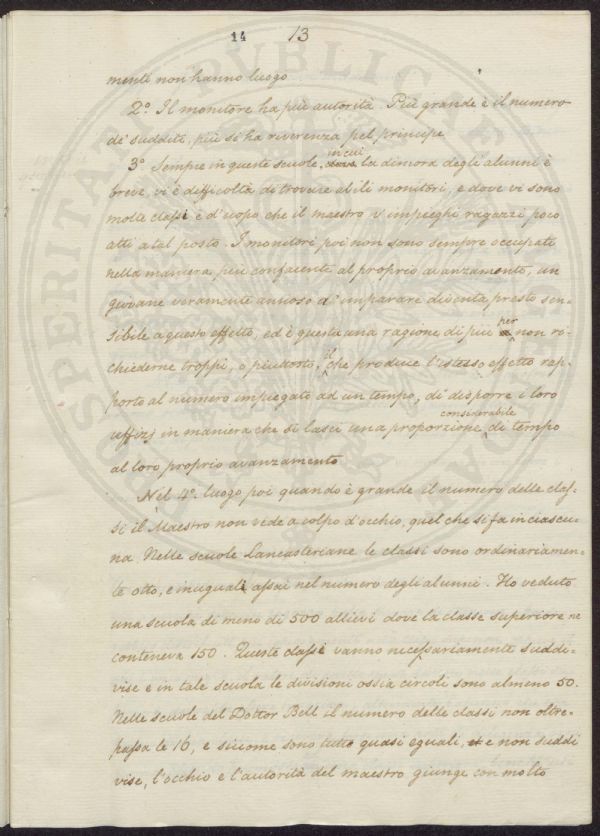 14 13
menti non hanno luogo
2º. Il monitore ha più autorità. Più grande è il numero
de' sudditi, più si ha riverenza pel principe
3º. Sempre in queste scuole, in cui la dimora degli alunni è
breve, vi è difficoltà di trovare abili monitori, e dove vi sono
molte classi è d'uopo che il maestro v'impieghi ragazzi poco
atti a tal posto. I monitori poi non sono sempre occupati
nella maniera più confacente al proprio avanzamento, un
giovane veramente ansioso d'imparare diventa presto sen-
sibile a questo effetto, ed è questa una ragione di più per non ri-
chiederne troppi, o piuttosto, il che produce l'istesso effetto rap-
porto al numero impiegato ad un tempo, di disporre i loro
uffizj in maniera che si lasci una proporzione considerabile di tempo
al loro proprio avanzamento
Nel 4º. luogo poi quando è grande il numero delle clas-
si il Maestro non vede a colpo d'occhio, quel che si fa in ciascu-
na. Nelle scuole Lancasteriane le classi sono ordinariamen-
te otto, e inuguali assai nel numero degli alunni. Ho veduto
una scuola di meno di 500 allievi dove la classe superiore ne
conteneva 150. Queste classi vanno necessariamente suddi-
vise e in tale scuola le divisioni ossia circoli sono almeno 50.
Nelle scuole del Dottor Bell il numero delle classi non oltre-
passa le 16, e siccome sono tutte quasi eguali, e non suddi
vise, l'occhio e l'autorità del maestro giunge con molto
PROSPERITATI PUBLICAE AUG